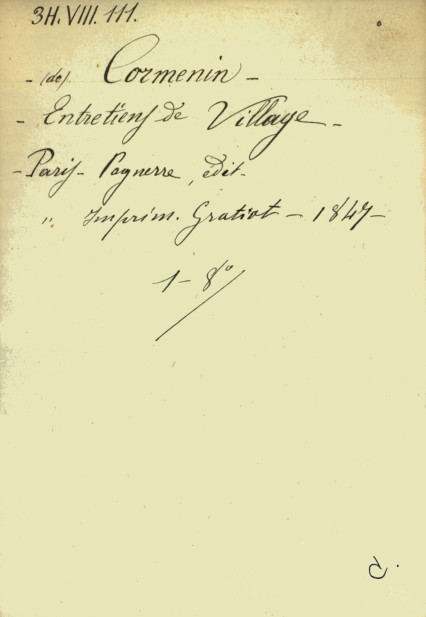 3H.VIII.111.
- (de) Cormenin -
- Entretiens de Village -
- Paris - Pagnerre, édit -
" Imprim. Gratiot - 1847 -
1 - 8°
C.